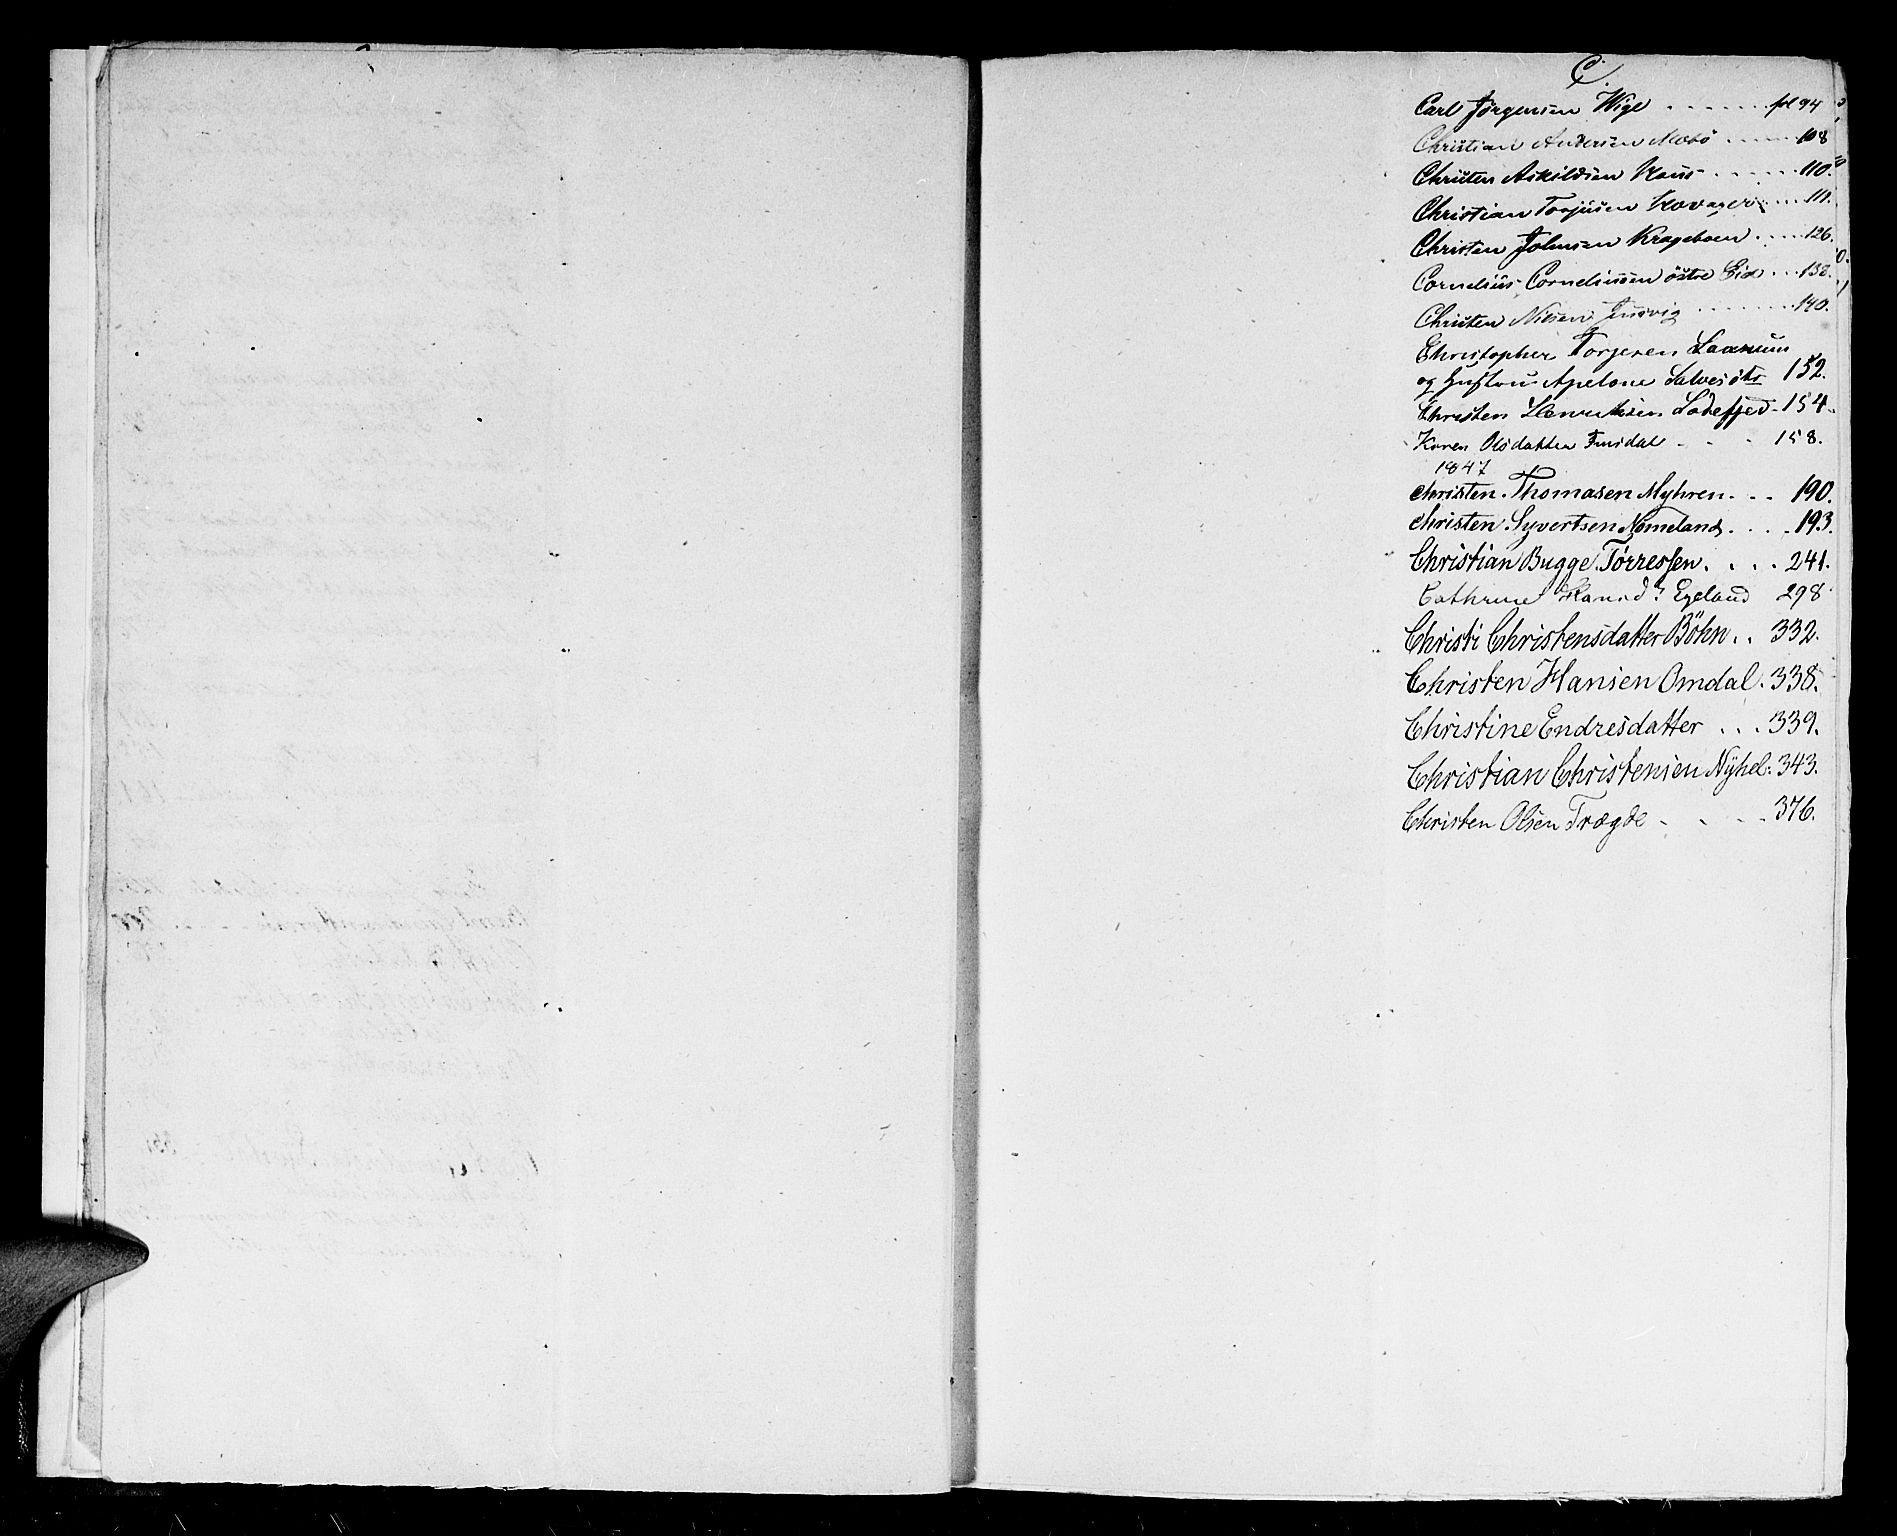 C.
Carl Jörgensen Wige . . . . . . fol 94
Christian Andersen Mobö . . . . . 108
Christen Askildsen Haus . . . . . 110.
Christian Torjusen Kovager . . . 111.
Christen Johnsen Krageboen . . . . . 126.
Cornelius Corneliussen östre Eid . . . 138.
Christen Nilsen Juusvig . . . . . . . 140.
Christopher Torjesen Laanum
og Hustru Apelone Salvesdtr 152.
Christen Henriksen Lodefjed . 154.
Karen Olsdatter Fusdal . . . 158.
1847
Christen Thomasen Myhren . . . 190.
Christen Syvertsen Nomeland . . . . 193.
Christian Bugge Törressen . . . . 241.
Cathrine Hansd: Egeland 298
Christi Christensdatter Böhn . . 332.
Christen Hansen Omdal . 338.
Christine Endresdatter . . . 339.
Christian Christensen Nÿhel: 343.
Christen Olsen Trægde . . . . 376.